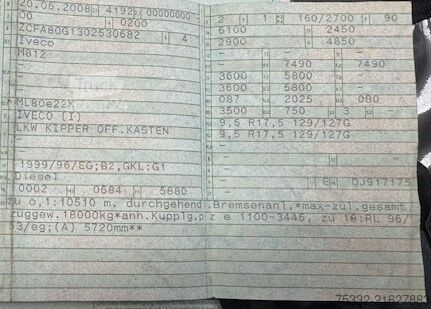 20.06.2008 4192 00000000 2 1 160/2700 90
00 0200 6100 2450
ZCFA80G1302530682 4 2900 4850
Iveco - -
M812 - 7490 - 7490
- 3600 5800 -
- 3600 5800 -
ML80e22K 087 2025 080
IVECO (I) 3500 750 3
LKW KIPPER OFF.KASTEN 9,5 R17,5 129/127G
- 9,5 R17,5 129/127G
1999/96/EG;B2,GKL:G1
Diesel
0002 0684 5880 DJ917175
zu o,1:10510 m. durchgehend.Bremsenanl.*max-zul.gesamt
zuggew.18000kg*anh.Kupplg.
e 1100-3445, zu 18:RL 96/
53/eg;(A) 5720mm**